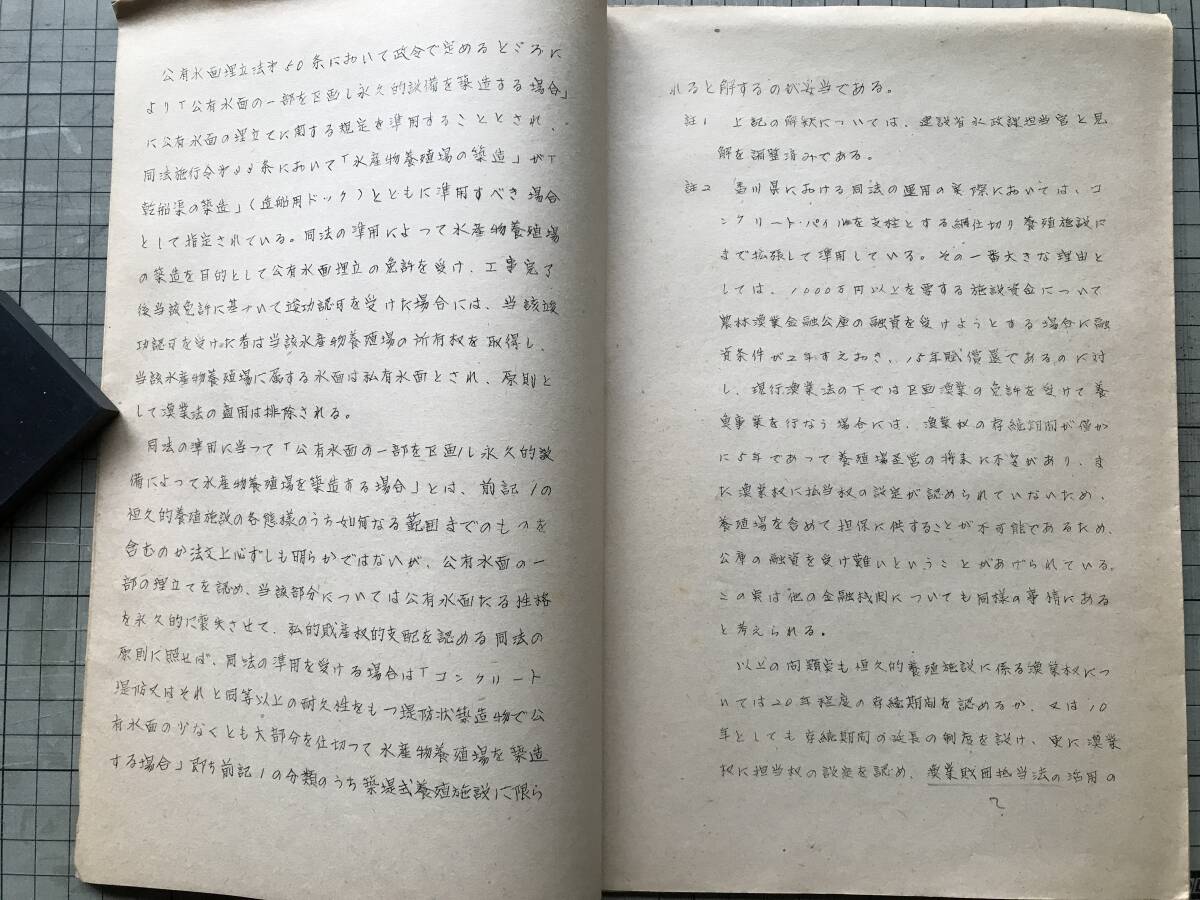 公有水面埋立法第50条において政令で定めるところに
より「公有水面の一部を区画し永久的設備を築造する場合」
に公有水面の埋立てに関する規定を準用することとされ、
同法施行令第32条において「水産物養殖場の築造」が「
乾船渠の築造」(造船用ドック)とともに準用すべき場合
として指定されている。同法の準用によって水産物養殖場
の築造を目的として公有水面埋立の免許を受け、工事完了
後当該免許に基づいて竣功認可を受けた場合には、当該竣
功認可を受けた者は当該水産物養殖場の所有权を取得し、
当該水産物養殖場に属する水面は私有水面とされ、原則と
して漁業法の適用は排除される。
同法の準用に当って「公有水面の一部を区画し永久的設
備によって水産物養殖場を築造する場合」とは、前記1の
恒久的養殖施設の各態様のうち如何なる範囲までのものを
含むのか法文上必ずしも明らかではないが、公有水面の一
部の埋立てを認め、当該部分については公有水面たる性格
を永久的に喪失させて、私的財産权的支配を認める同法の
原則に照せば、同法の準用を受ける場合は「コンクリート
堤防又はそれと同等以上の耐久性をもつ堤防状築造物で公
有水面の少なくとも大部分を仕切って水産物養殖場を築造
する場合」即ち前記1の分類のうち築堤式養殖施設に限ら
れると解するのが妥当である。
註1 上記の解釈については、建設省水政課担当官と見
解を調整済みである。
註2 香川県における同法の運用の実際においては、コ
ンクリート・パイルを支柱とする網仕切り養殖施設に
まで拡張して準用している。その一番大きな理由と
しては、1000万円以上を要する施設資金について
農林漁業金融公庫の融資を受けようとする場合に融
資条件が2年すえおき、15年賦償還であるのに対
し、現行漁業法の下では区画漁業の免許を受けて養
魚事業を行なう場合には、漁業权の存続期間が僅か
に5年であって養殖場経営の将来に不安があり、ま
た漁業权に抵当权の設定が認められていないため、
養殖場を含めて担保に供することが不可能であるため、
公庫の融資を受け難いということがあげられている。
この実は他の金融機関についても同様の事情にある
と考えられる。
以上の問題実も恒久的養殖施設に係る漁業权につ
いては20年程度の存続期間を認めるか、又は10
年としても存続期間の延長の制度を設け、更に漁業
权に担当权の設定を認め、漁業財団抵当法の活用の
2